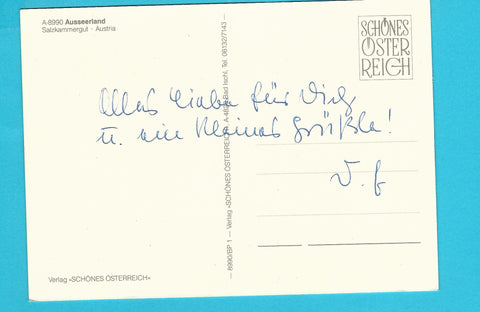 A-8990 Ausseerland
Salzkammergut · Austria
SCHÖNES
ÖSTER
REICH
Alles Liebe für Dich
u. ein kleines Grüßle!
8990/BP 1 — Verlag »SCHÖNES ÖSTERREICH« Bad Ischl, Tel. 06132/7143 —
Verlag »SCHÖNES ÖSTERREICH«